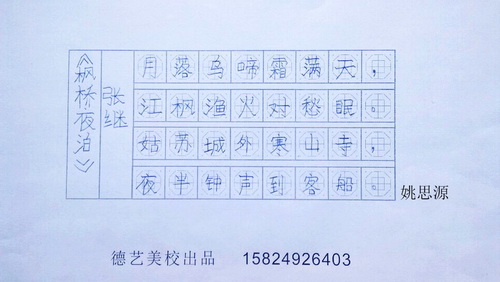 《枫桥夜泊》
张继
月落乌啼霜满天，
江枫渔火对愁眠。
姑苏城外寒山寺，
夜半钟声到客船。
姚思源
德艺美校出品 15824926403